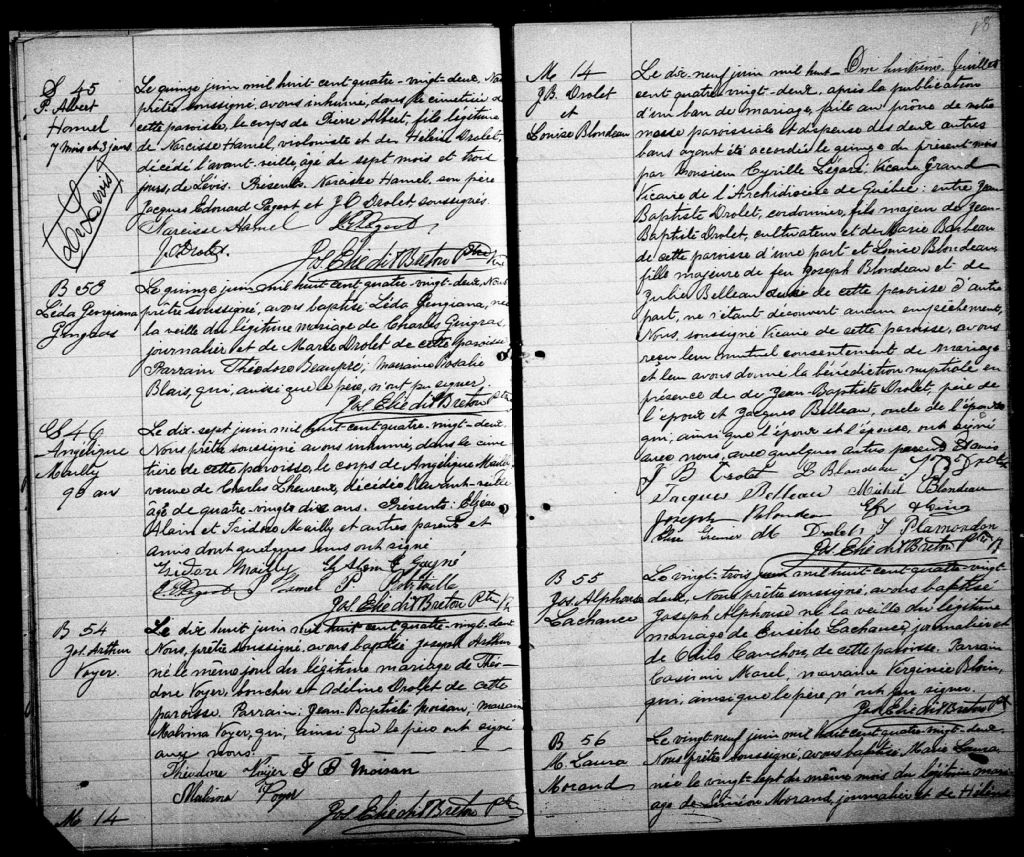 S 45
P. Albert
Hamel
7 mois et 3 jours
de Lévis
Le quinze juin mil huit cent quatre-vingt-deux, Nous
prêtre soussigné, avons inhumé, dans le cimetière de
cette paroisse, le corps de Pierre Albert, fils légitime
de Narcisse Hamel, violoniste et de Hélène Drolet,
décédé l'avant-veille âgé de sept mois et trois
jours, de Lévis. Présents. Narcisse Hamel, son père
Jacques Edouard Pageot et J. O Drolet soussignés
Narcisse Hamel J E Pageot
J. O Drolet.
Jos. Elie dit Breton Ptre
B 53
Léda Georgiana
Gingras
Le quinze juin mil huit cent quatre-vingt-deux, Nous
prêtre soussigné, avons baptisé Léda Georgiana, née
la veille du légitime mariage de Charles Gingras,
journalier et de Marie Drolet de cette paroisse
Parrain Théodore Beaupré; marraine Rosalie
Blais, qui, ainsi que le père, n'ont pu signer.
Jos. Elie dit Breton Ptre
S 46
Angélique
Mailly
90 ans
Le dix-sept juin mil huit cent quatre-vingt-deux.
Nous prêtre soussigné avons inhumé, dans le cime
tière de cette paroisse, le corps de Angélique Mailly
veuve de Charles Lheureux, décédée l'avant-veille
âgé de quatre-vingts dix ans. Présents: Elzéar
Alain et Isidore Mailly et autres parents et
amis dont quelques uns ont signé
Isidore Mailly E Gagné
J E Pageot P Hamel P. Robitaille
Jos. Elie dit Breton Ptre
B 54
Jos. Arthur
Voyer
Le dix huit juin mil huit cent quatre-vingt-deux
Nous, prêtre soussigné, avons baptisé Joseph Arthur
né le même jour du légitime mariage de Théo-
dore Voyer, boucher et Adéline Drolet de cette
paroisse. Parrain; Jean-Baptiste Moisan, marraine
Malvina Voyer, qui, ainsi que le père ont signé
avec nous.
Théodore Voyer J B Moisan
Malvina Voyer
Jos Elie dit Breton Ptre
M 14
18
M 14
J.B. Drolet
et
Louise Blondeau
Le dix-neuf juin mil huit— Dix huitième feuillet
cent quatre-vingt-deux, après la publication
d'un ban de mariage, faite au prône de notre
messe paroissiale et dispense des deux autres
bans ayant été accordée le quinze du présent mois
par Monsieur Cyrille Légaré, Vicaire Grand
Vicaire de l'Archidiocèse de Québec: entre Jean
Baptiste Drolet, cordonnier, fils majeur de Jean-
Baptiste Drolet, cultivateur et de Marie Barbeau
de cette paroisse d'une part et Louise Blondeau,
fille majeure de feu Joseph Blondeau et de
Julie Belleau de cette paroisse d'autre
part, ne s'étant découvert aucun empêchement,
Nous, soussigné Vicaire de cette paroisse, avons
reçu leur mutuel consentement de mariage
et leur avons donné la bénédiction nuptiale en
présence de de Jean-Baptiste Drolet, père de
l'époux et Jacques Belleau, oncle de l'épouse
qui, ainsi que l'époux et l'épouse, ont signé
avec nous, avec quelques autres parents & amis
J B Drolet L Blondeau J B Drolet
Jacques Belleau Michel Blondeau
Joseph Blondeau
Grenier M Drolet J Plamondon
Jos. Elie dit Breton Ptre
B 55
Jos. Alphonse
Lachance
Le vingt-trois juin mil huit cent quatre-vingt-
deux, Nous prêtre soussigné, avons baptisé
Joseph Alphonse né la veille du légitime
mariage de Eusèbe Lachance, journalier et
de Odile Cauchon, de cette paroisse. Parrain
Casimir Morel, marraine Verginie Blouin,
qui, ainsi que le père, n'ont pu signer.
Jos Elie dit Breton Ptre
B 56
M. Laura
Morand
Le vingt-neuf juin mil huit cent quatre-vingt-deux.
Nous prêtre soussigné, avons baptisé Marie Laura,
née le vingt-sept du même mois du légitime mari-
age de Siméon Morand, journalier et de Hélène